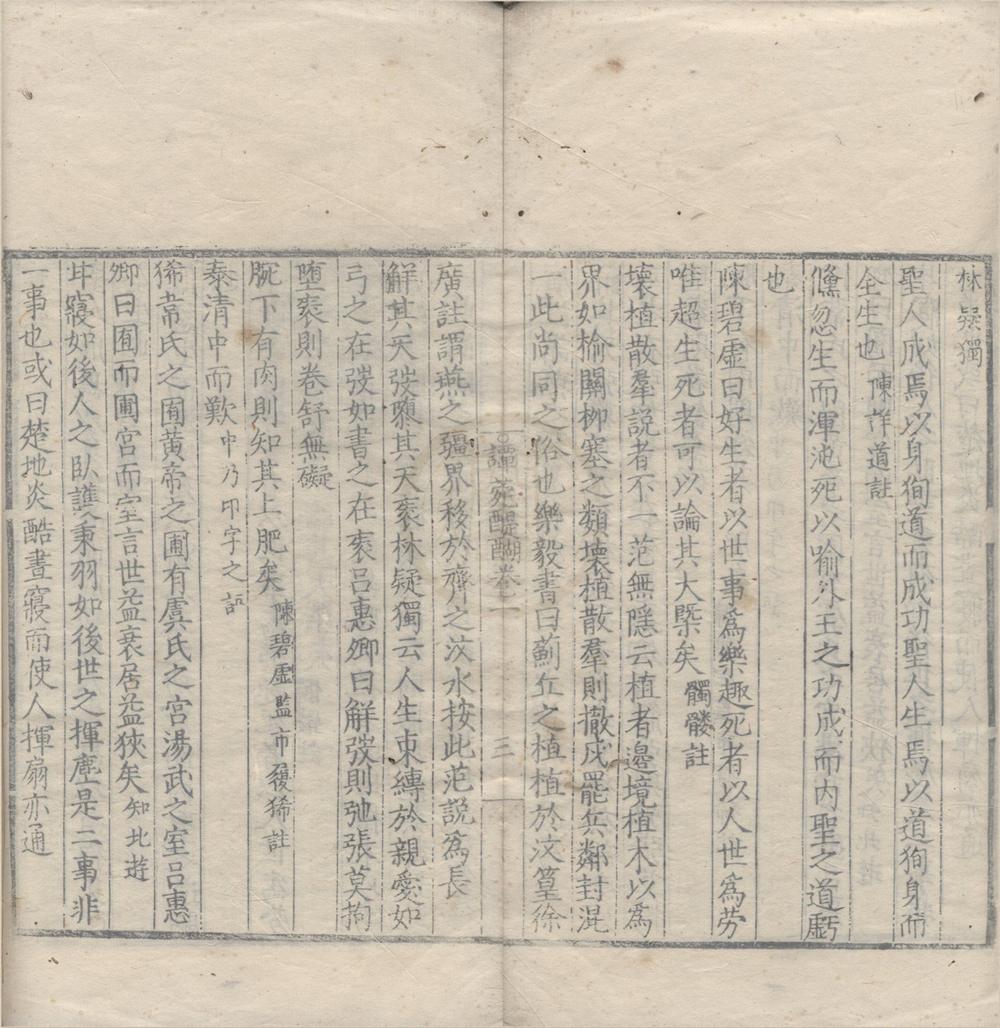 林疑獨
聖人成焉以身徇道而成功聖人生焉以道徇身而
全生也 陳詳道註
儵忽生而渾沌死以喻外王之功成而内聖之道虧
也
陳碧虛曰好生者以世事爲樂趣死者以人世爲勞
唯超生死者可以論其大槩矣 髑髏註
壞植散羣説者不一范無隱云植者邊境植木以爲
界如榆關柳塞之類壞植散羣則撤戍罷兵鄰封混
一此尚同之俗也樂毅書曰薊丘之植植於汶篁徐
譚苑醍醐卷一
三
廣註謂燕之疆界移於齊之汶水按此范説爲長
解其天弢隳其天袠林疑獨云人生束縛於親愛如
弓之在弢如書之在袠吕惠卿曰解弢則弛張莫拘
堕袠則卷舒無礙
腨下有肉則知其上肥矣 陳碧虛監市履狶註
泰清中而歎 中乃卬字之誤
狶韋氏之囿黄帝之圃有虞氏之宫湯武之室吕惠
卿曰囿而圃宫而室言世益衰居益狹矣 知北遊
丼寢如後人之臥護秉羽如後世之揮麈是二事非
一事也或曰楚地炎酷晝寢而使人揮扇亦通